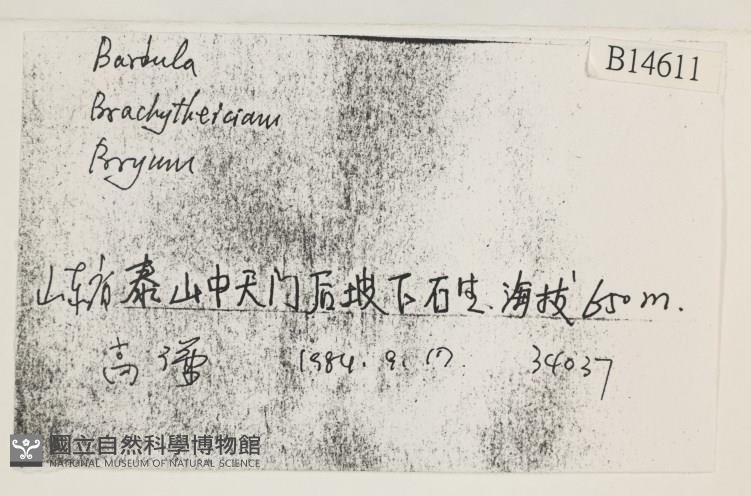 B14611
Barbula
Brachytheciam
Bryum
山东省泰山中天门后坡下石生、海拔650m.
高谦 1984.9.17. 34037
國立自然科學博物館
NATIONAL MUSEUM OF NATURAL SCIENCE